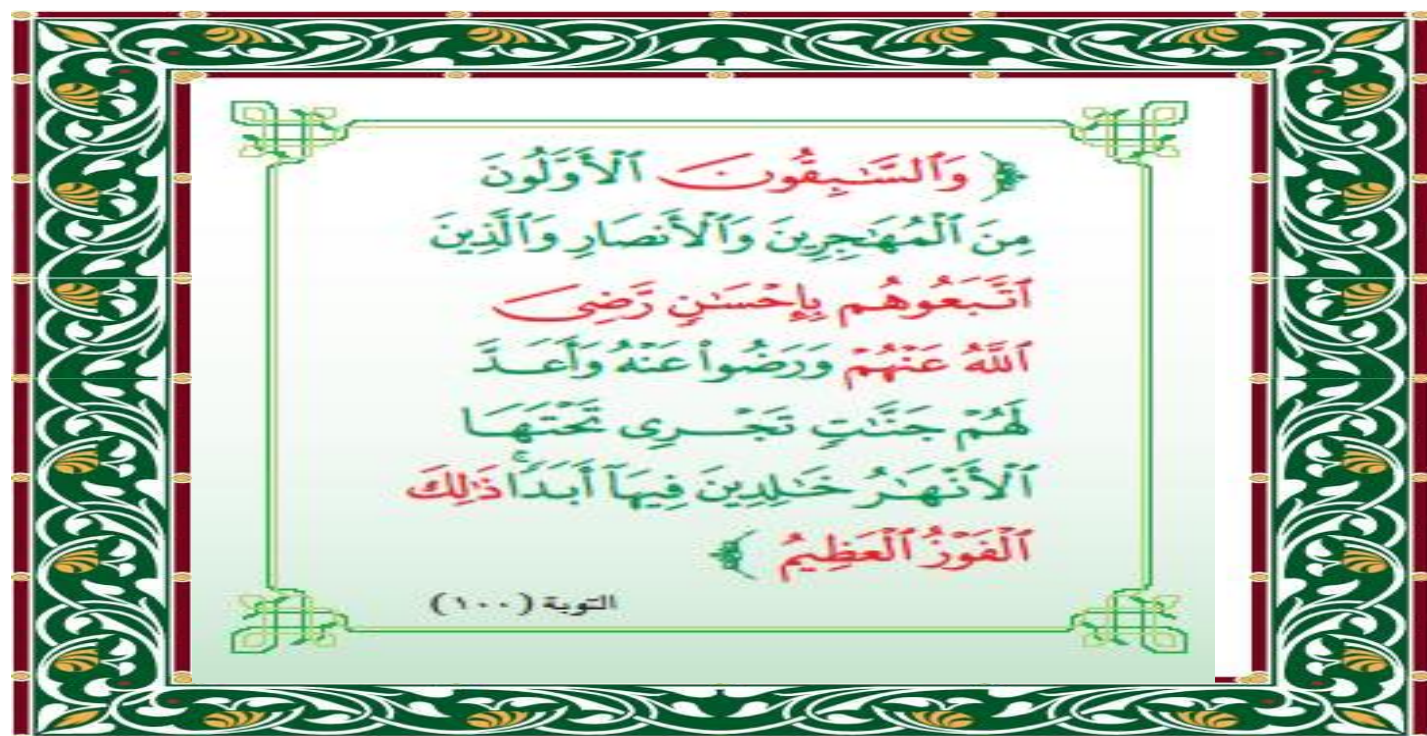 ﴿ وَٱلسَّـٰبِقُونَ ٱلْأَوَّلُونَ
مِنَ ٱلْمُهَـٰجِرِينَ وَٱلْأَنصَارِ وَٱلَّذِينَ
ٱتَّبَعُوهُم بِإِحْسَـٰنٍ رَّضِىَ
ٱللَّهُ عَنْهُمْ وَرَضُوا۟ عَنْهُ وَأَعَدَّ
لَهُمْ جَنَّـٰتٍ تَجْرِى تَحْتَهَا
ٱلْأَنْهَـٰرُ خَـٰلِدِينَ فِيهَآ أَبَدًا ۚ ذَٰلِكَ
ٱلْفَوْزُ ٱلْعَظِيمُ ﴾
التوبة (١٠٠)